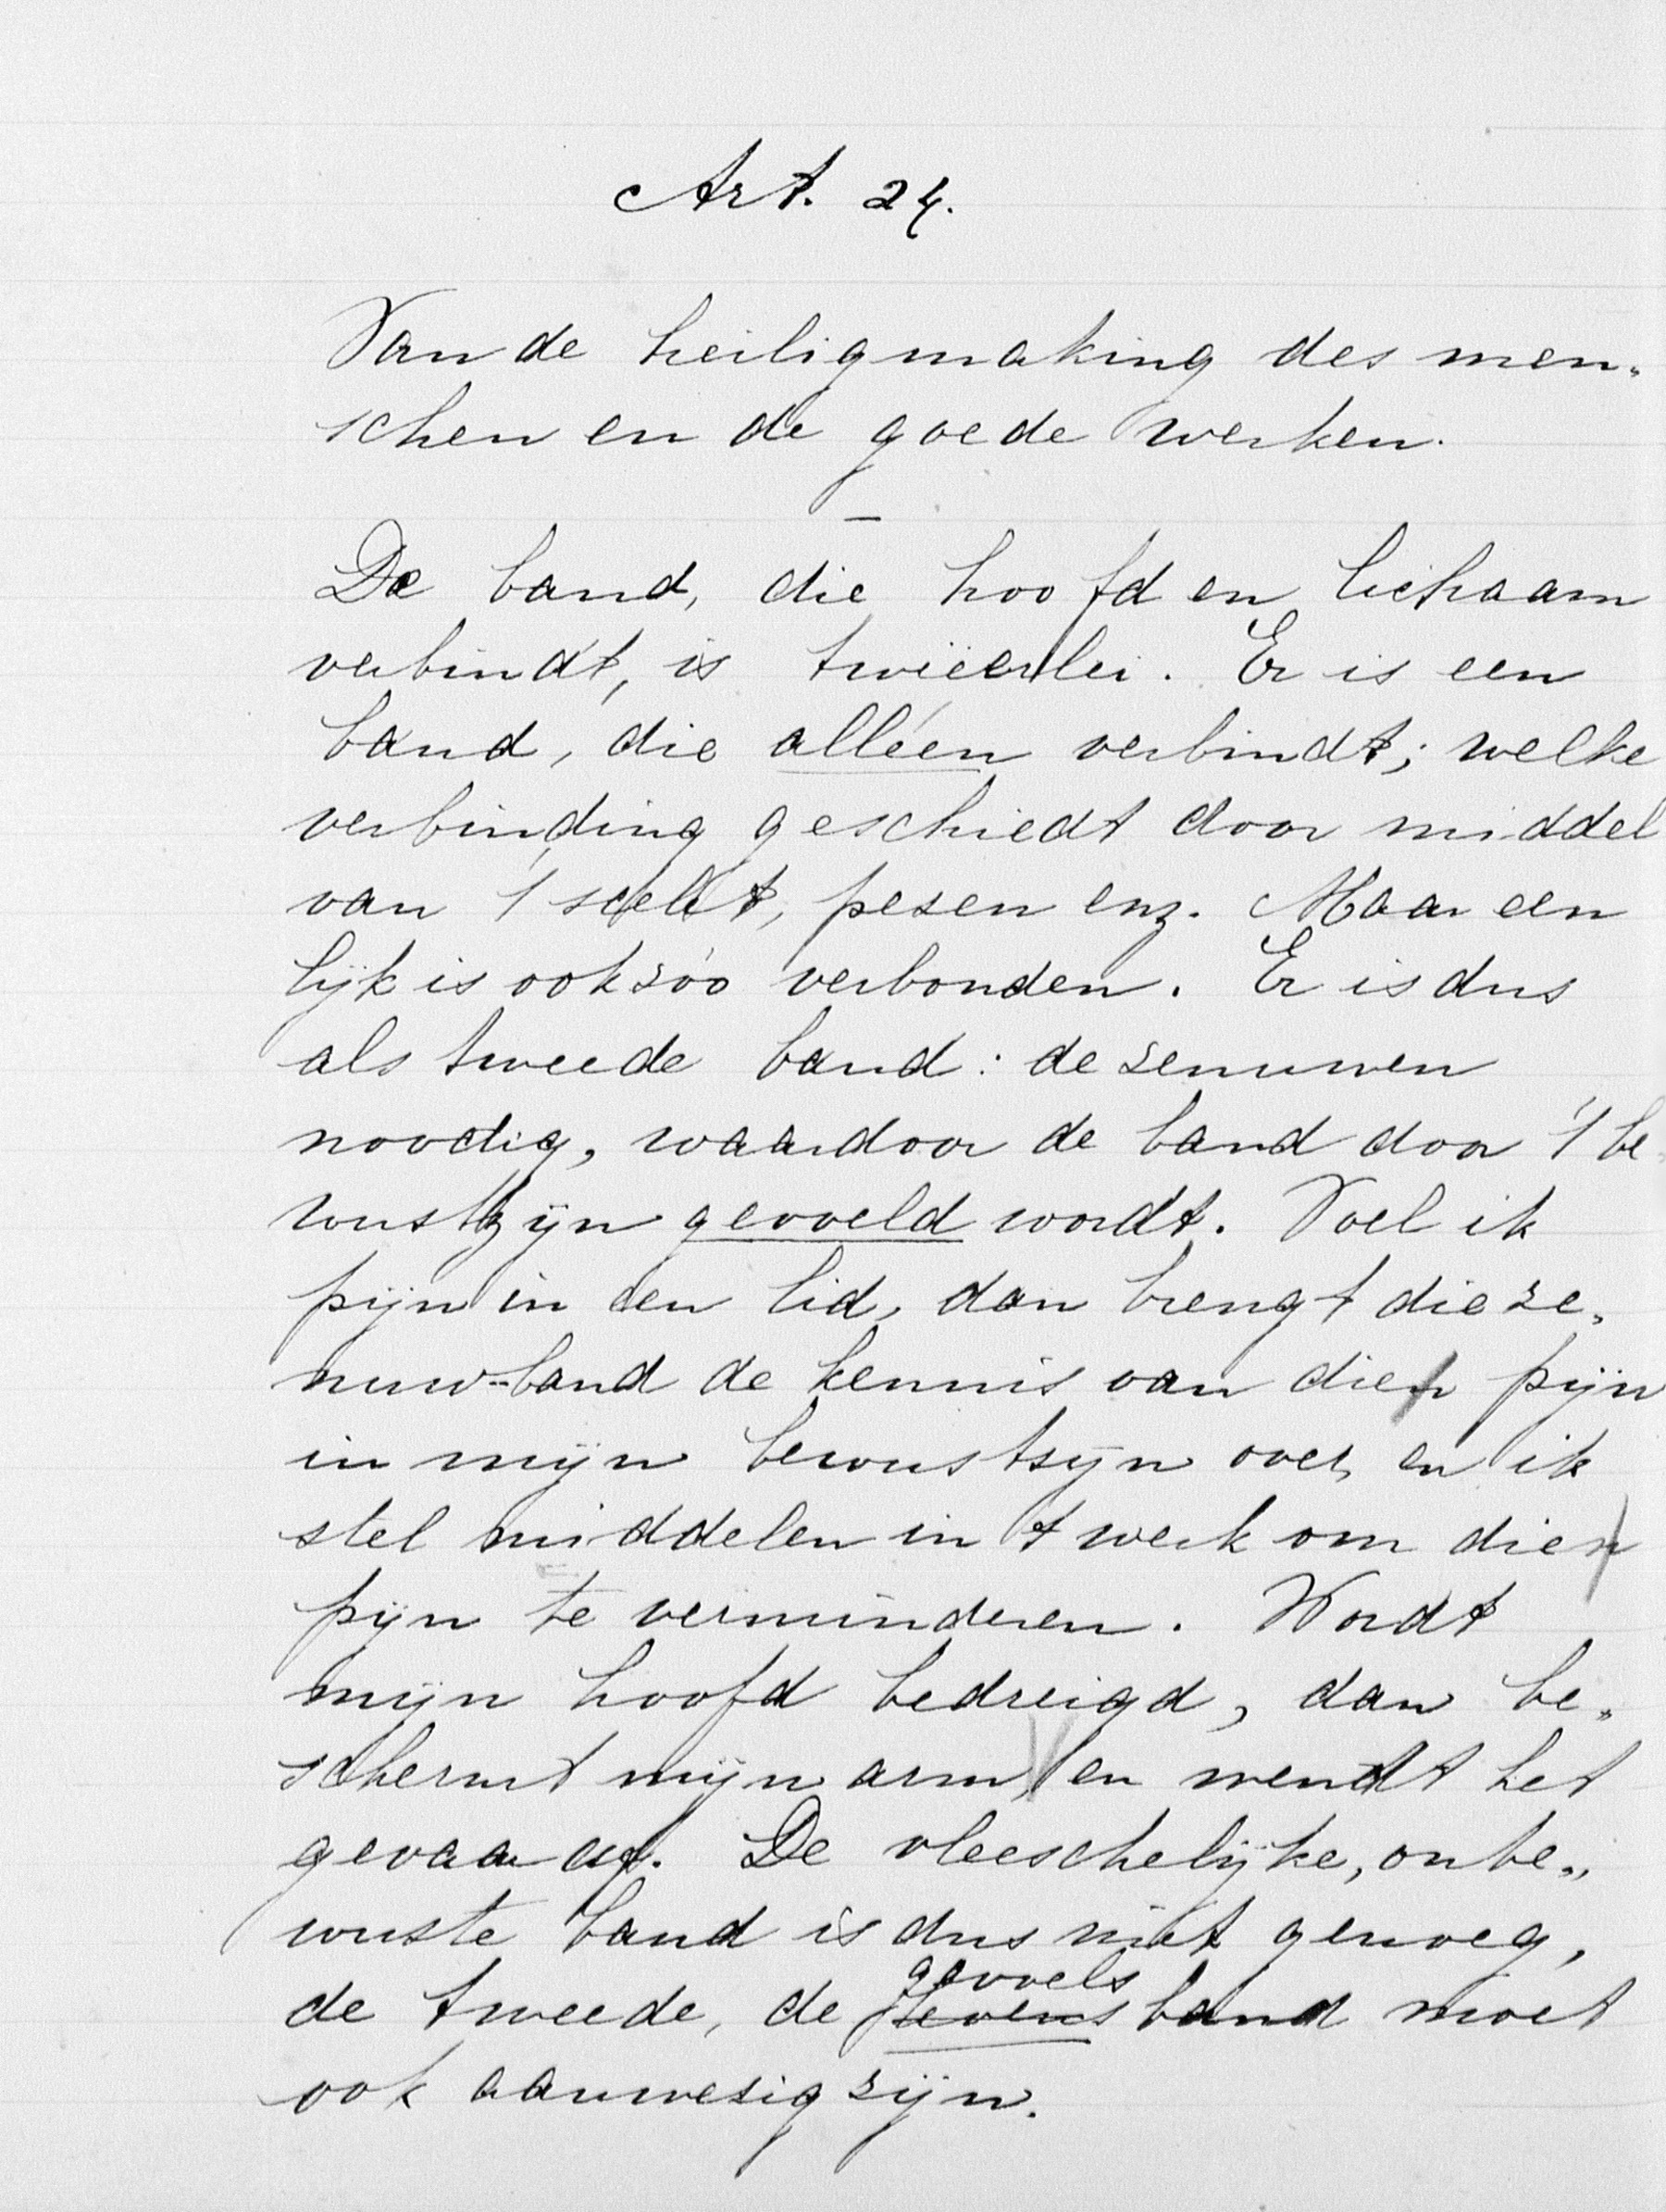 Art. 24.
Van de heiligmaking des men-
schen en de goede werken.
De band, die hoofd en lichaam
verbindt, is tweeërlei. Er is een
band, die alléén verbindt; welke
verbinding geschiedt door middel
van 't scelet, pesen enz. Maar een
lijk is ook zóó verbonden. Er is dus
als tweede band: de zenuwen
noodig, waardoor de band door 't be-
wustzijn gevoeld wordt. Voel ik
pijn in een lid, dan brengt die ze-
nuw-band de kennis van dien pijn
in mijn bewustzijn over, en ik
stel middelen in 't werk om dien
pijn te verminderen. Wordt
mijn hoofd bedreigd, dan be-
schermt mijn arm, en wendt het
gevaar af. De vleeschelijke, onbe-
wuste band is dus niet genoeg,
gevoels
de tweede, de levens band moet
ook aanwezig zijn.